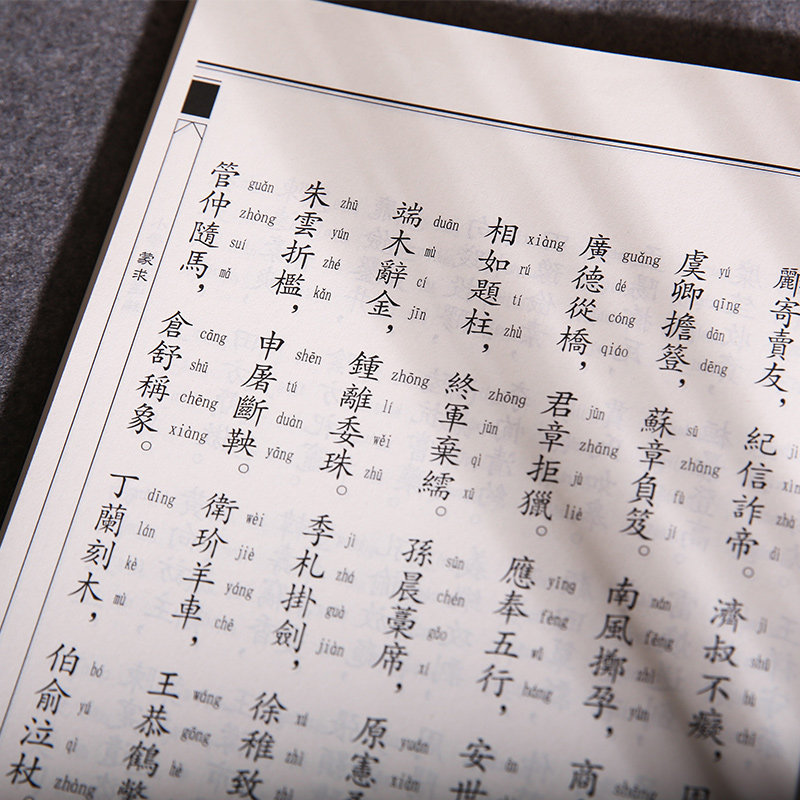 酈寄賣友,紀信詐帝。濟叔不癡,
jì xìn zhà dì jǐ shū bù chī
虞卿擔簦,蘇章負笈。南風擲孕,商
yú qīng dān dēng sū zhāng fù jí nán fēng zhì yùn shāng
廣德從橋,君章拒獵。應奉五行,安世
guǎng dé cóng qiáo jūn zhāng jù liè yīng fèng wǔ háng ān
相如題柱,終軍棄繻。孫晨藁席,原憲
xiàng rú tí zhù zhōng jūn qì xū sūn chén gǎo xí yuán xiàn
端木辭金,鍾離委珠。季札掛劍,徐稚致
duān mù cí jīn zhōng lí wěi zhū jì zhá guà jiàn xú zhì zhì
朱雲折檻,申屠斷鞅。衛玠羊車,王恭鶴
zhū yún zhé kǎn shēn tú duàn yāng wèi jiè yáng chē wáng gōng hè
管仲隨馬,倉舒稱象。丁蘭刻木,伯俞泣杖。
guǎn zhòng suí mǎ cāng shū chēng xiàng dīng lán kè mù bó yú qì zhàng
蒙求